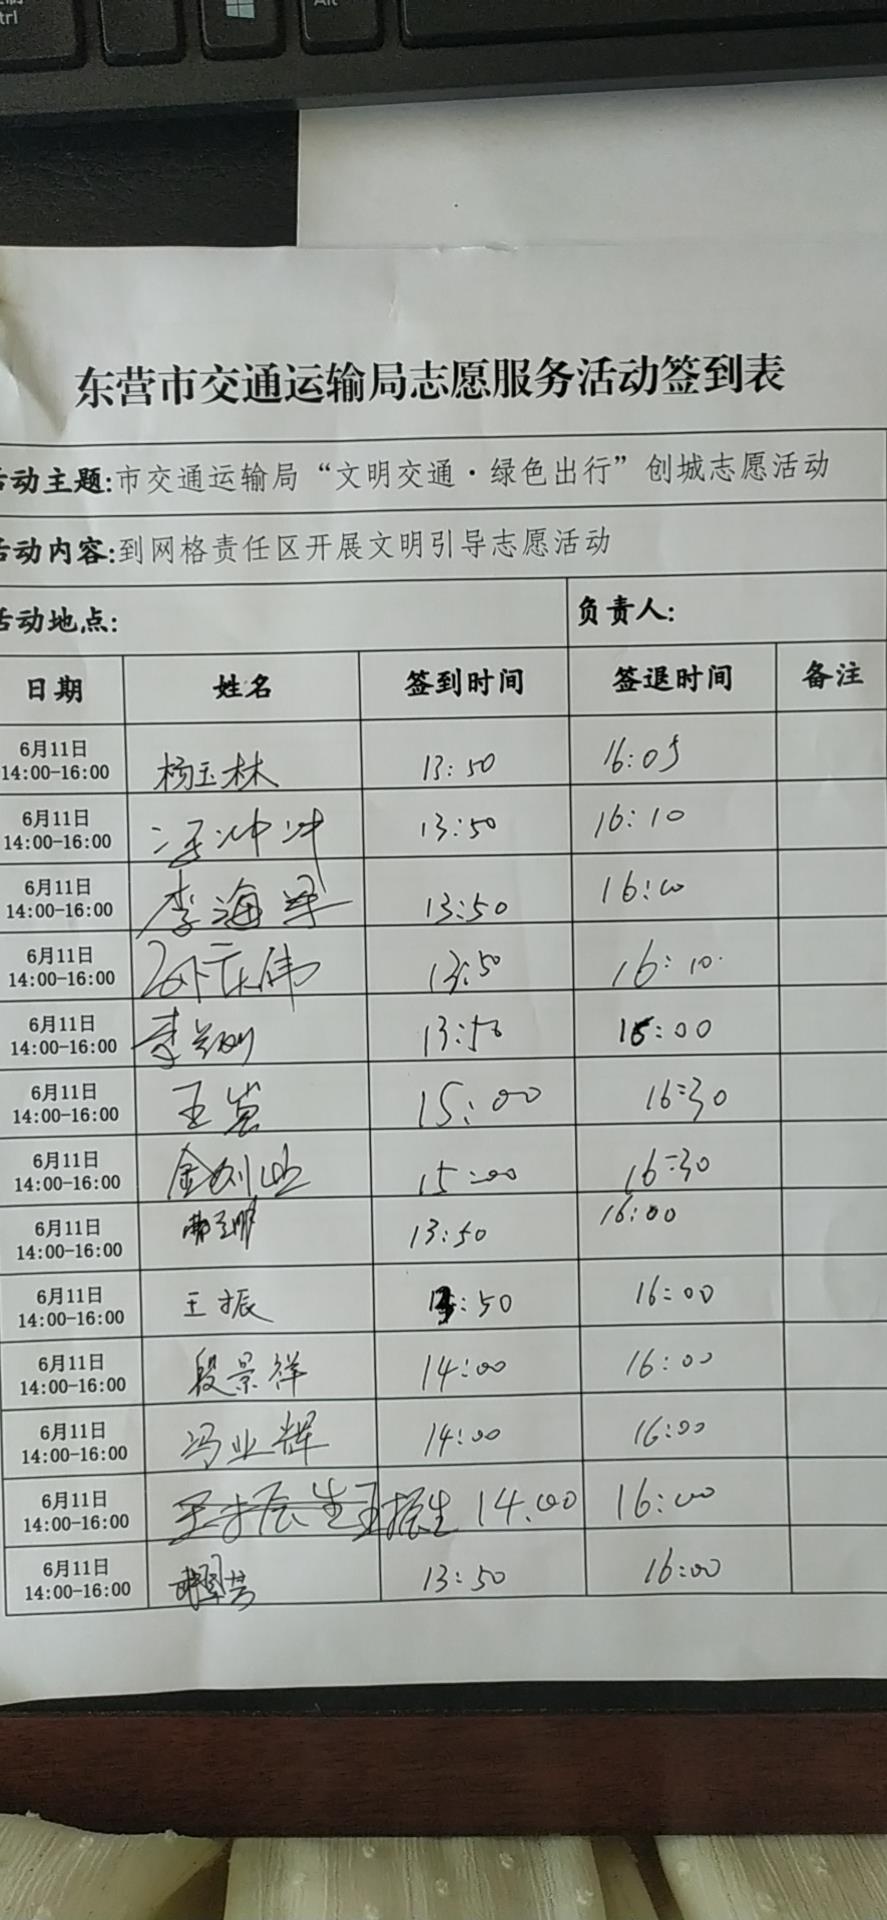 Alt
东营市交通运输局志愿服务活动签到表
活动主题:市交通运输局“文明交通·绿色出行”创城志愿活动
活动内容:到网格责任区开展文明引导志愿活动
活动地点: 负责人:
日期 姓名 签到时间 签退时间 备注
6月11日
14:00-16:00 杨玉林 13:50 16:05
6月11日
14:00-16:00 冲冲 13:50 16:10
6月11日
14:00-16:00 李海军 13:50 16:00
6月11日
14:00-16:00 13:50 16:10
6月11日
14:00-16:00 李 13:50 16:00
6月11日
14:00-16:00 王 15:00 16:30
6月11日
14:00-16:00 金 15:00 16:30
6月11日
14:00-16:00 13:50 16:00
6月11日
14:00-16:00 王振 13:50 16:00
6月11日
14:00-16:00 段景祥 14:00 16:00
6月11日
14:00-16:00 冯业辉 14:00 16:00
6月11日
14:00-16:00 王振生 王振生 14:00 16:00
6月11日
14:00-16:00 13:50 16:00